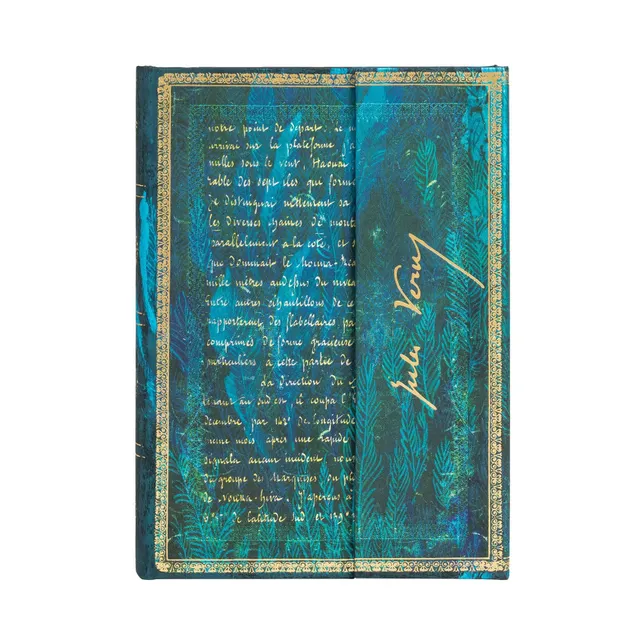 notre point de départ : je m
arrivai sur la plateforme, j'a
milles sous le vent, Haouai
rable des sept iles que forme
Je distinguai nettement sa
les diverses chaines de monta
parallèlement a la coté, et s
que dominait le Mouna-Rea
mille mètres au dessus du nivea
Entre autres échantillons de ce
rapportèrent des flabellaires pa
comprimés de forme gracieuse
particuliers a cette partie de
La direction du
au sud est, il coupa l'E
décembre, par 142° de longitude
meme mois après une rapide
signala aucun incident, nous
du groupe des Marquises ou pl
de Nouka-hiva. J'aperçus à
de latitude sud et 139°
Jules Verne